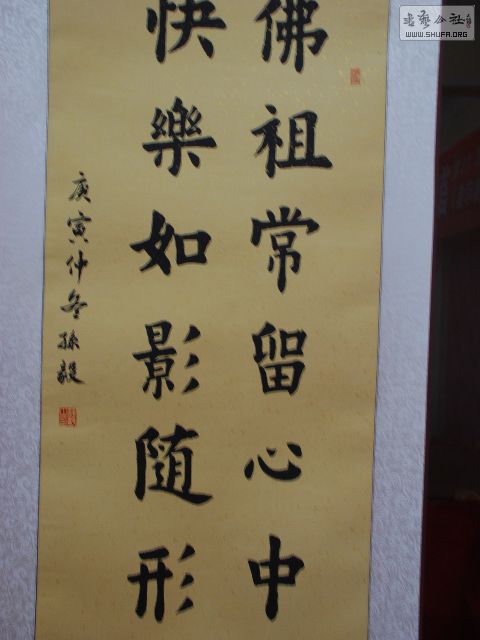 佛祖常留心中
快樂如影随形
庚寅仲冬孫毅
書藝公社
WWW.SHUFA.ORG